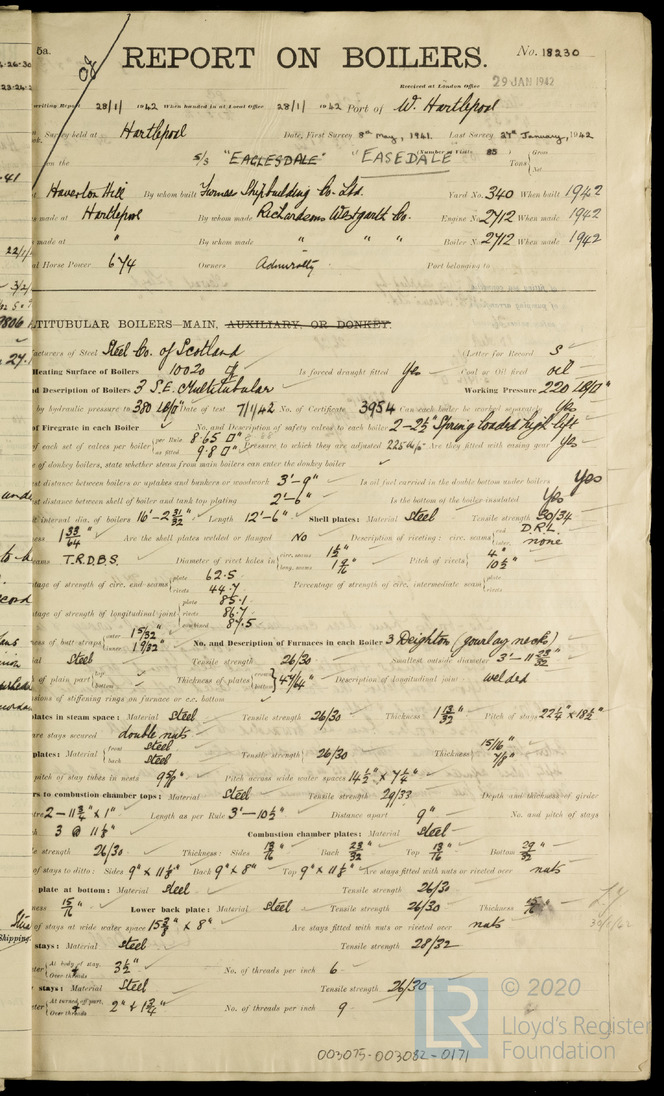 5a.
REPORT ON BOILERS.
No. 18230
Received at London Office
29 JAN 1942
writing Report 28/1/ 1942 When handed in at Local Office 28/1/ 1942 Port of W. Hartlepool
Survey held at Hartlepool Date, First Survey 8th May, 1941. Last Survey 27th January, 1942
on the S/S "EAGLESDALE" "EASEDALE" (Number of Visits 85 ) Tons Gross Net
Haverton Hill By whom built Furness Shipbuilding Co. Ltd. Yard No. 340 When built 1942
made at Hartlepool By whom made Richardsons Westgarth Co. Engine No. 2712 When made 1942
made at " By whom made " " " Boiler No. 2712 When made 1942
Horse Power 674 Owners Admiralty Port belonging to
TITUBULAR BOILERS—MAIN, AUXILIARY, OR DONKEY.
facturers of Steel Steel Co. of Scotland (Letter for Record S
Heating Surface of Boilers 10020 Is forced draught fitted Yes Coal or Oil fired oil
d Description of Boilers 3 S.E. Multitubular Working Pressure 220 lb/□"
by hydraulic pressure to 380 lb/□" Date of test 7/1/42 No. of Certificate 3954 Can each boiler be worked separately Yes
of Firegrate in each Boiler No. and Description of safety valves to each boiler 2-2½" Spring loaded high lift
of each set of valves per boiler per Rule 8.65 □" as fitted 9.80" Pressure to which they are adjusted 225 lb/□" Are they fitted with easing gear Yes
of donkey boilers, state whether steam from main boilers can enter the donkey boiler
st distance between boilers or uptakes and bunkers or woodwork 3'-9" Is oil fuel carried in the double bottom under boilers Yes
st distance between shell of boiler and tank top plating 2'-6" Is the bottom of the boiler insulated Yes
st internal dia. of boilers 16'-2 31/32" Length 12'-6" Shell plates: Material Steel Tensile strength 30/34
ess 1 33/64" Are the shell plates welded or flanged No Description of riveting: circ. seams end D.R.L. inter. none
seams T.R.D.B.S. Diameter of rivet holes in circ. seams 1½" long. seams 1 9/16" Pitch of rivets 4" 10½"
tage of strength of circ. end seams plate 62.5 rivets 44.7 Percentage of strength of circ. intermediate seam plate rivets
tage of strength of longitudinal joint plate 85.1 rivets 86.7 combined 87.5
ss of butt straps outer 1 5/32" inner 1 9/32" No. and Description of Furnaces in each Boiler 3 Deighton (gourlay necks)
al Steel Tensile strength 26/30 Smallest outside diameter 3'-11 29/32"
of plain part top bottom Thickness of plates crown bottom 47/64" Description of longitudinal joint welded
sions of stiffening rings on furnace or c.c. bottom
plates in steam space: Material Steel Tensile strength 26/30 Thickness 1 13/32" Pitch of stays 22¼" x 18½"
are stays secured double nuts
plates: Material front steel back steel Tensile strength 26/30 Thickness 15/16" 7/8"
pitch of stay tubes in nests 9⅝" Pitch across wide water spaces 14½" x 7¼"
rs to combustion chamber tops: Material Steel Tensile strength 29/33 Depth and thickness of girder
tre 2-11¾" x 1" Length as per Rule 3'-10½" Distance apart 9" No. and pitch of stays
3 @ 11⅛" Combustion chamber plates: Material Steel
le strength 26/30 Thickness: Sides 13/16" Back 23/32" Top 13/16" Bottom 29/32"
of stays to ditto: Sides 9" x 11⅛" Back 9" x 8" Top 9" x 11⅛" Are stays fitted with nuts or riveted over nuts
plate at bottom: Material Steel Tensile strength 26/30
ness 15/16" Lower back plate: Material Steel Tensile strength 26/30 Thickness
of stays at wide water space 15⅜" x 8" Are stays fitted with nuts or riveted over nuts
stays: Material Steel Tensile strength 28/32
ter At body of stay, 3½" Over threads No. of threads per inch 6
stays: Material Steel Tensile strength 26/30
ter At turned off part, Over threads 2" & 1¾" No. of threads per inch 9
LR © 2020
Lloyd's Register
Foundation
003075-003082-0171